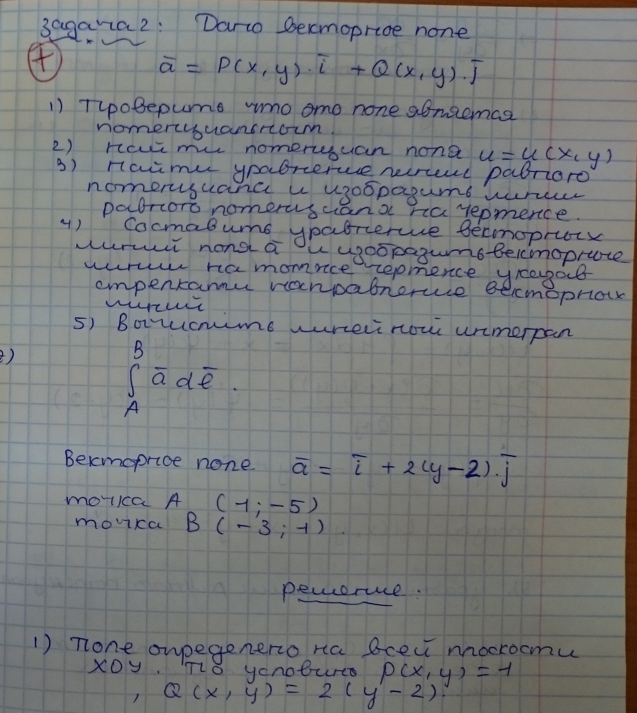 Задача 2: Дано векторное поле
+
ā = P(x, y)·ī + Q(x, y)·j̄
1) Проверить что это поле является
потенциальным.
2) Найти потенциал поля u = u(x, y)
3) Найти уравнение линии равного
потенциала и изобразить линии
равного потенциала на чертеже.
4) Составить уравнение векторных
линий поля ā и изобразить векторные
линии на том же чертеже указав
стрелками направление векторных
линий.
5) Вычислить линейный интеграл
B
∫ ā dē.
A
Векторное поле ā = ī + 2(y-2)·j̄
точка A (1; -5)
точка B (-3; 1).
Решение:
1) Поле определено на всей плоскости
XOY. По условию P(x, y) = 1
, Q(x, y) = 2(y-2).